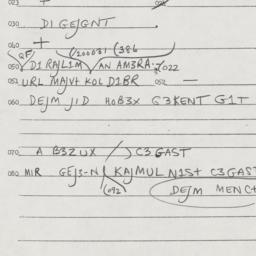 023 +
030 DIGEJGNT .
060 +
(200031 (386
050 DI RAJLIM AN AM3RA. /022
052 URL MAJVT KOL DIBR 052 —
060 DEJM JID HOB3X G3KENT GIT
070 A B3ZUX / C3GAST
080 MIR GEJ3-N KAJMUL NIST C3GAST
(092
DEJM MENC